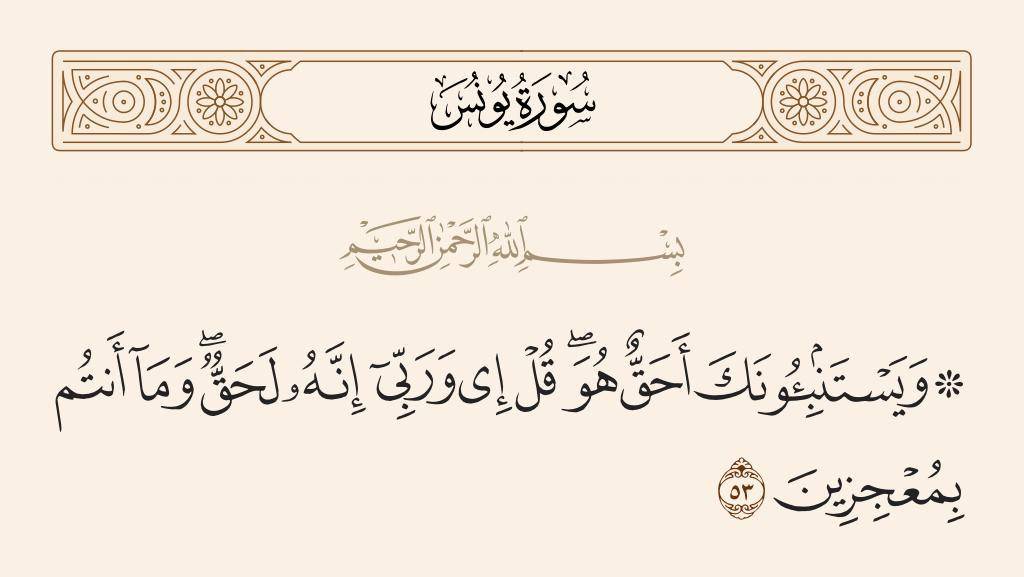 سُورَةُ يُونُسَ
بِسْمِ ٱللَّهِ ٱلرَّحْمَٰنِ ٱلرَّحِيمِ
۞ وَيَسْتَنۢبِـُٔونَكَ أَحَقٌّ هُوَ ۖ قُلْ إِى وَرَبِّىٓ إِنَّهُۥ لَحَقٌّ ۖ وَمَآ أَنتُم
بِمُعْجِزِينَ ٥٣